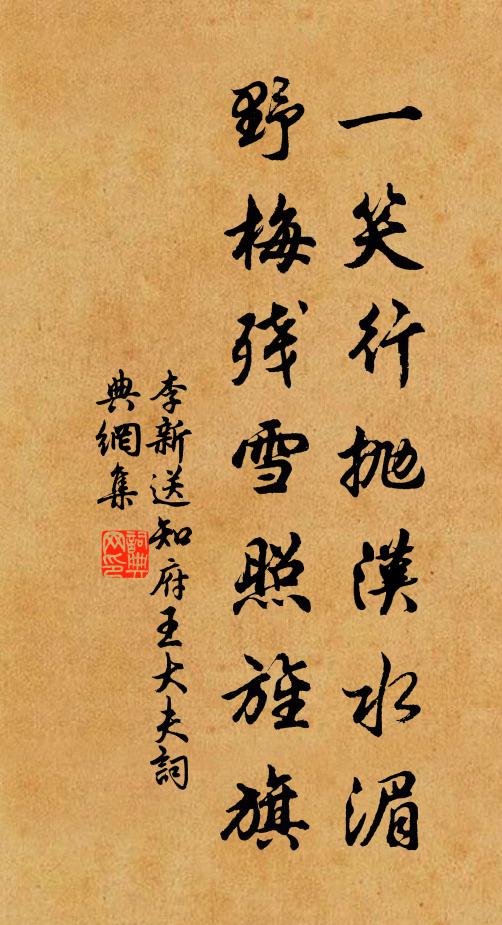 一笑行抛漢水湄
野梅残雪照旌旗
李新送知府王大夫詞
典網集
詞典網印